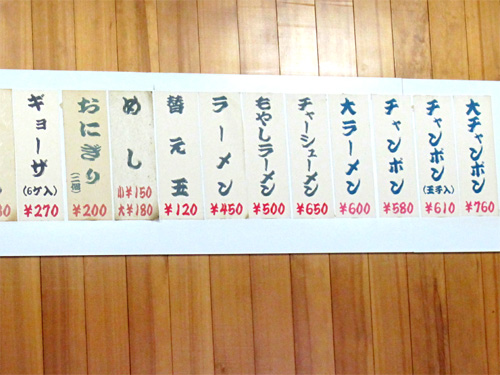 大チャンポン
¥760
チャンポン
(玉子入)
¥610
チャンポン
¥580
大ラーメン
¥600
チャーシューメン
¥650
もやしラーメン
¥500
ラーメン
¥450
替元玉
¥120
めし
小¥150
大¥180
おにぎり
(二個)
¥200
ギョーザ
(6ケ入)
¥270